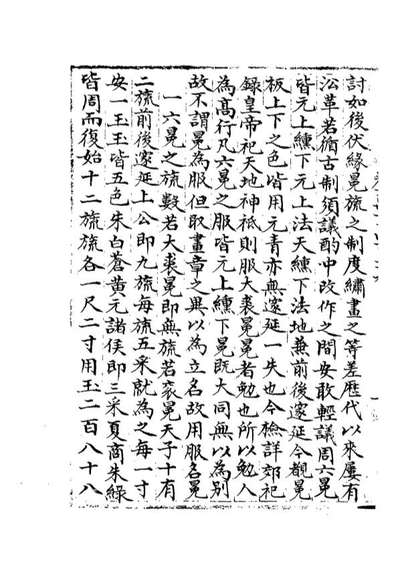 討如後伏緣冕旒之制度繡畫之等差歷代以來屢有
沿革若循古制須議酌中改作之間安敢輕議周六冕
皆元上纁下元上法天纁下法地兼前後邃延今覩冕
板上下之色皆用元青亦無邃延一失也今檢詳郊祀
録皇帝祀天地神祇則服大裘冕冕者勉也所以勉人
為髙行凡六冕之服皆元上纁下冕既大同無以為别
故不謂冕為服但取畫章之異以為立名故用服名冕
一六冕之旒數若大裘冕即無旒若衮冕天子十有
二旒前後邃延上公即九旒每旒五采就為之每一寸
安一玉玉皆五色朱白蒼黄元諸侯即三采夏商朱綠
皆周而復始十二旒旒各一尺二寸用玉二百八十八